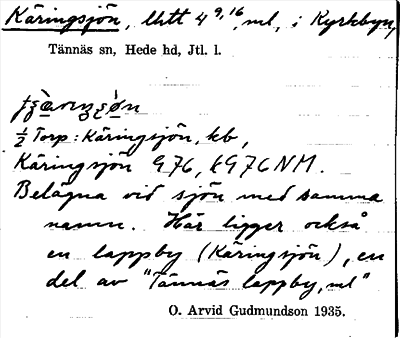 Käringsjön, litt 4 9,16, ml, i Kyrkbyn,
Tännäs sn, Hede hd, Jtl. l.
½ Torp: Käringsjön, kb,
Käringsjön G76, kG76NM.
Belägna vid sjön med samma
namn. Här ligger också
en lappby (Käringsjön), en
del av "Tännäs lappby, ml"
O. Arvid Gudmundson 1935.